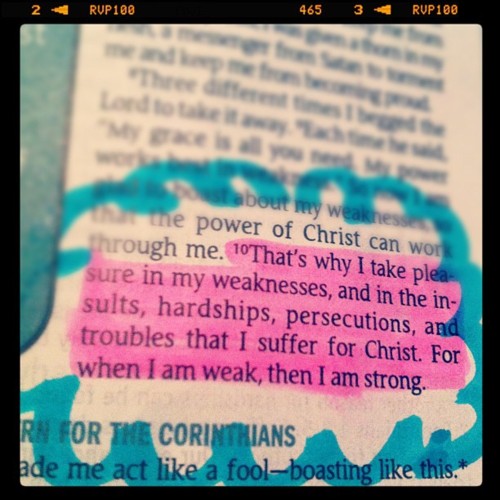 2 RVP100 465 3 RVP100
me from
was given a thorn in my
a messenger from Satan to torment
me and keep me from becoming proud.
8Three different times I begged the
Lord to take it away. 9Each time he said,
"My grace is all you need. My power
works best in weakness." So now I am
glad to boast about my weaknesses, so
that the power of Christ can work
through me. 10That's why I take plea-
sure in my weaknesses, and in the in-
sults, hardships, persecutions, and
troubles that I suffer for Christ. For
when I am weak, then I am strong.
RN FOR THE CORINTHIANS
ade me act like a fool—boasting like this.*